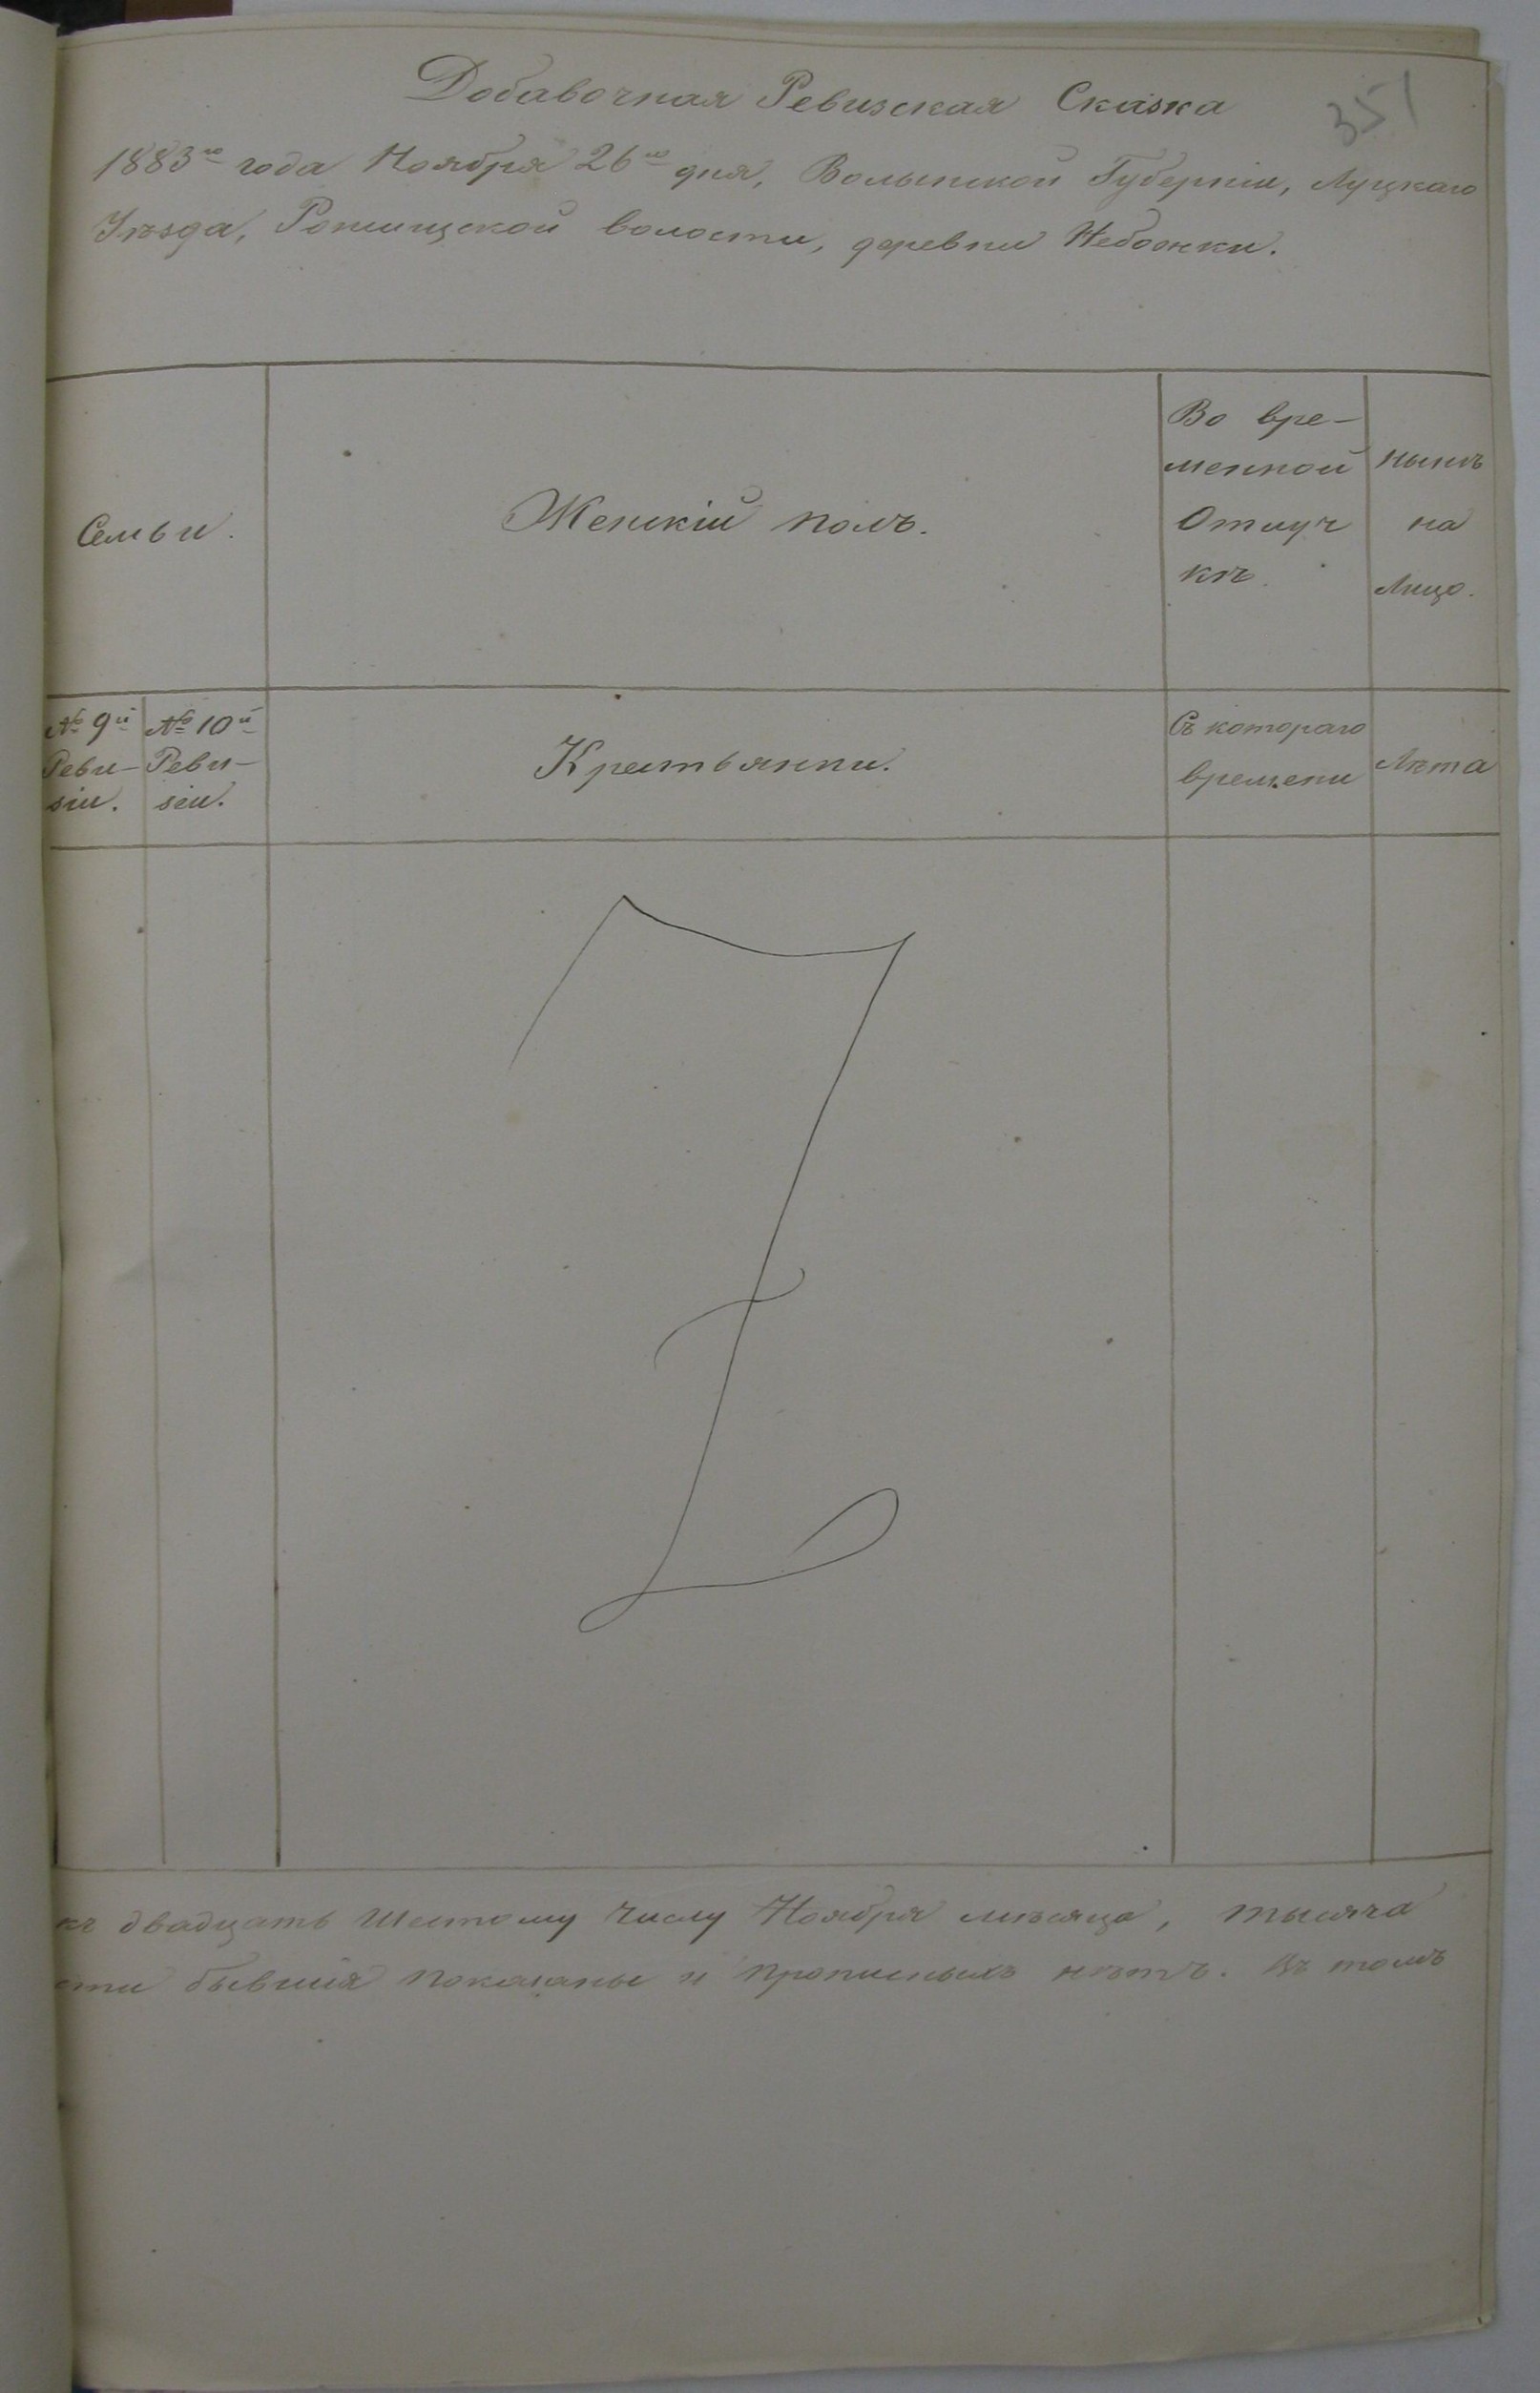 351
Добавочная Ревизская Сказка
1883го года Ноября 26го дня, Волынской Губерніи, Луцкаго
Уѣзда, Рожищской волости, деревни Небожки.
Семьи.
Женскій полъ.
Во вре-
менной
Отлуч
кѣ.
нынѣ
на
Лицо.
№ 9й
Реви-
зіи.
№ 10й
Реви-
зіи.
Крестьянки.
Съ котораго
времени
Лѣта
къ двадцать Шестому Числу Ноября мѣсяца, тысяча
сти бывшія показаны и прописныхъ нѣтъ. Въ томъ